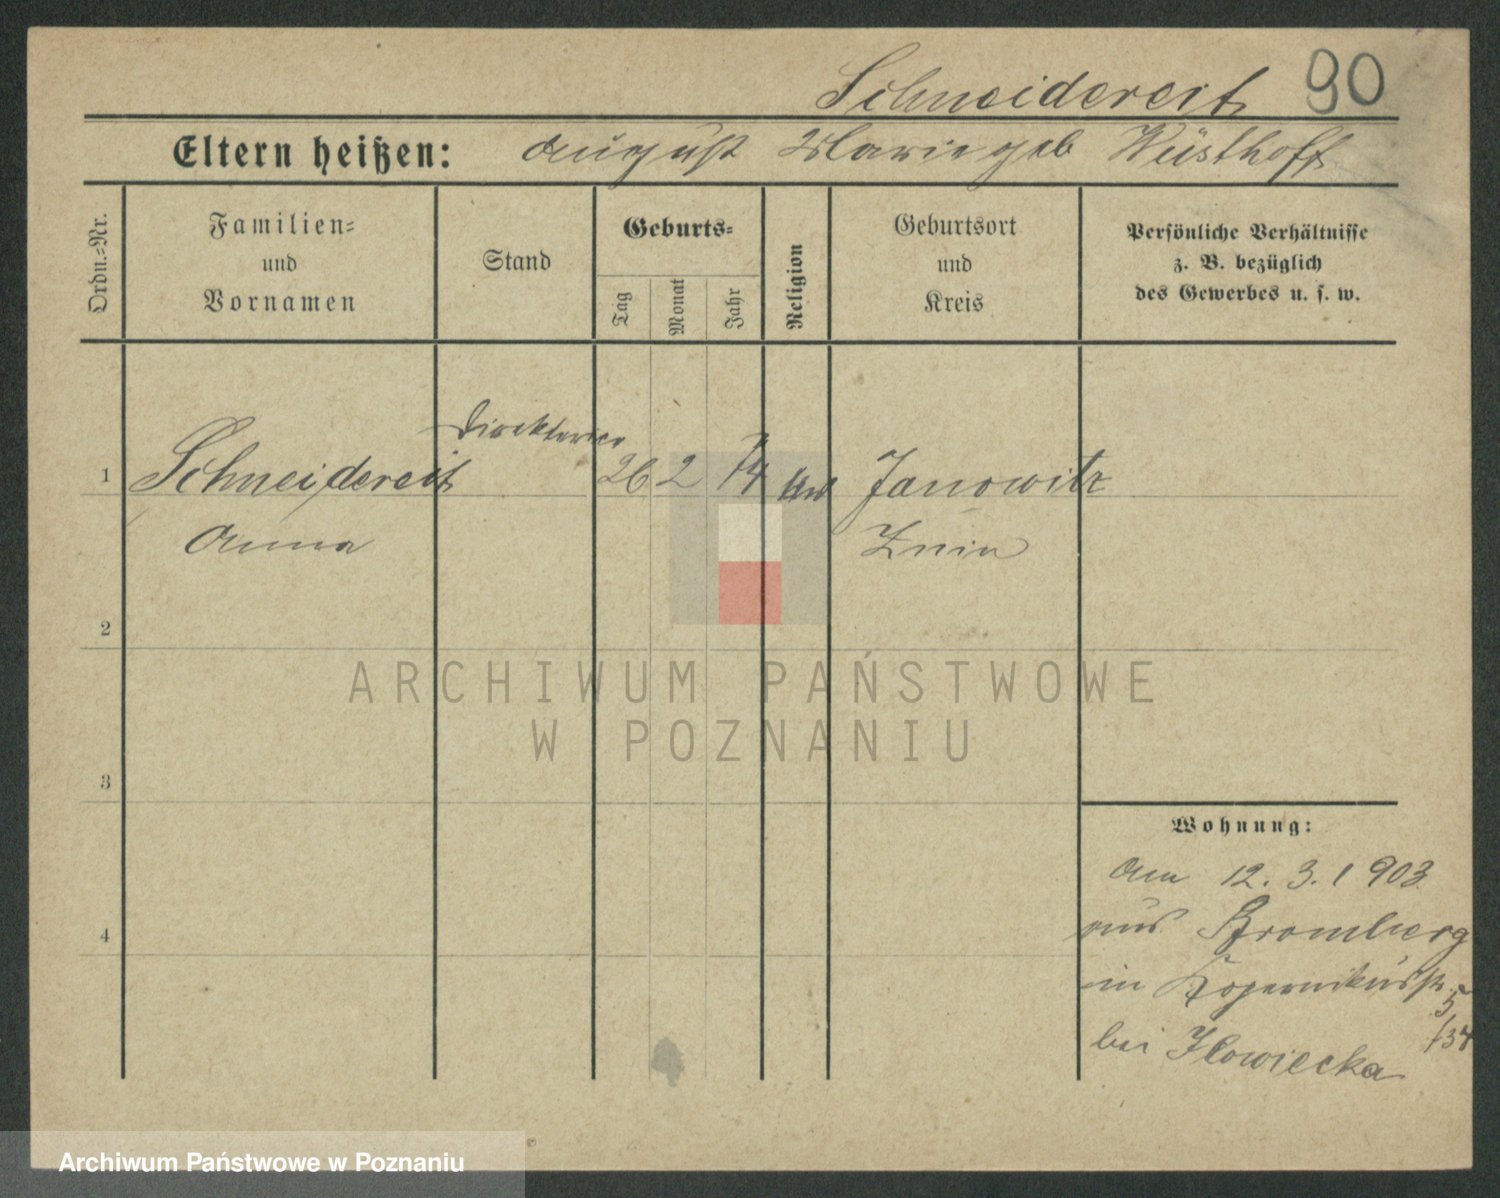 Schneidereit 90
Eltern heißen: August Marie geb Wüsthoff
Ordn.-Nr.
Familien-
und
Vornamen
Stand
Geburts-
Tag
Monat
Jahr
Religion
Geburtsort
und
Kreis
Persönliche Verhältnisse
z. B. bezüglich
des Gewerbes u. s. w.
1 Schneidereit 26 2 74 Janowitz
Anna Znin
2
3
4
Wohnung:
Am 12.3.1903
aus Bromberg
in Kopernikusstr. 5
bei Ilowiecka /34
ARCHIWUM PAŃSTWOWE
W POZNANIU
Archiwum Państwowe w Poznaniu